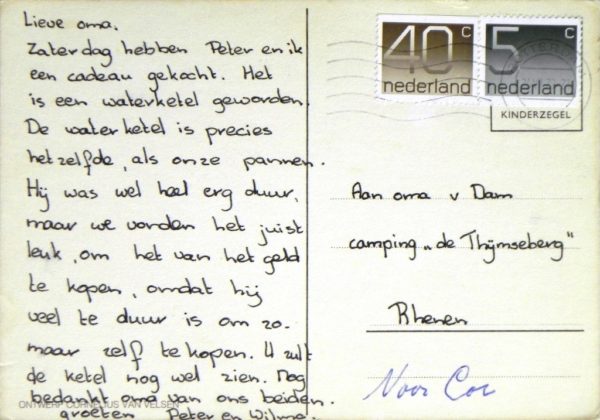 Lieve oma,
Zaterdag hebben Peter en ik
een cadeau gekocht. Het
is een waterketel geworden.
De waterketel is precies
hetzelfde, als onze pannen.
Hij was wel heel erg duur,
maar we vonden het juist
leuk, om het van het geld
te kopen, omdat hij
veel te duur is om zo-
maar zelf te kopen. U zult
de ketel nog wel zien. Nog
bedankt oma van ons beiden.
groeten Peter en Wilma.
ONTWERP CORNELIUS VAN VELSEN
40 c
nederland
5 c
nederland
KINDERZEGEL
Aan oma v Dam
camping „de Thijmseberg"
Rhenen
Voor Cor